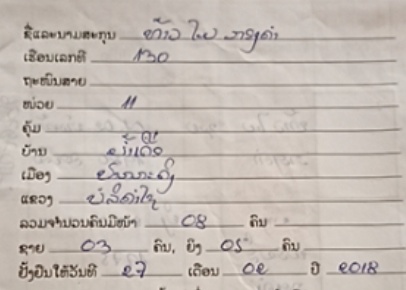 ຊື່ແລະນາມສະກຸນ ທ້າວ ໄພ
ເຮືອນເລກທີ 130
ຖະໜົນສາຍ
ໜ່ວຍ 11
ຄຸ້ມ
ບ້ານ
ເມືອງ ປາກກະດິງ
ແຂວງ ບໍລິຄໍາໄຊ
ລວມຈໍານວນຄົນມີໜ້າ 08 ຄົນ
ຊາຍ 03 ຄົນ, ຍິງ 05 ຄົນ
ຢັ້ງຢືນໃຫ້ວັນທີ 27 ເດືອນ 02 ປີ 2018